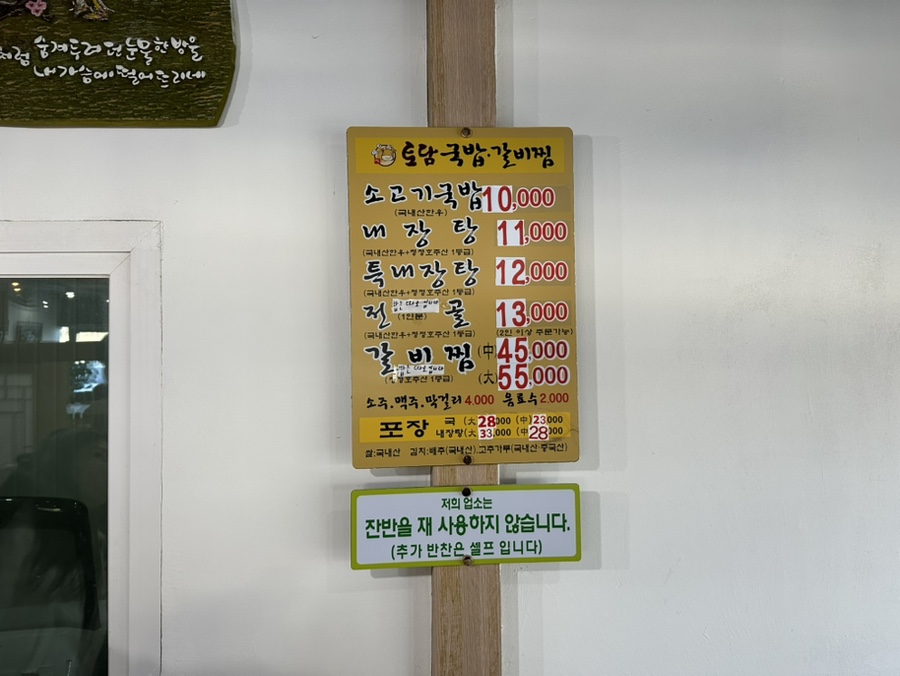 처럼 숨겨두려던 눈물 한 방울
내 가슴에 떨어뜨리네
토담 국밥·갈비찜
소고기국밥 10,000
(국내산한우)
내장탕 11,000
(국내산한우+청정호주산 1등급)
특내장탕 12,000
(국내산한우+청정호주산 1등급)
전골 13,000
(1인분)
(국내산한우+청정호주산 1등급) (2인 이상 주문가능)
갈비찜 (中) 45,000
(청정호주산 1등급) (大) 55,000
소주.맥주.막걸리 4.000 음료수 2.000
포장 국 (大) 28000 (中) 23000
내장탕(大) 33,000 (中) 28
쌀:국내산 김치:배추(국내산),고추가루(국내산·중국산)
저희 업소는
잔반을 재 사용하지 않습니다.
(추가 반찬은 셀프 입니다)